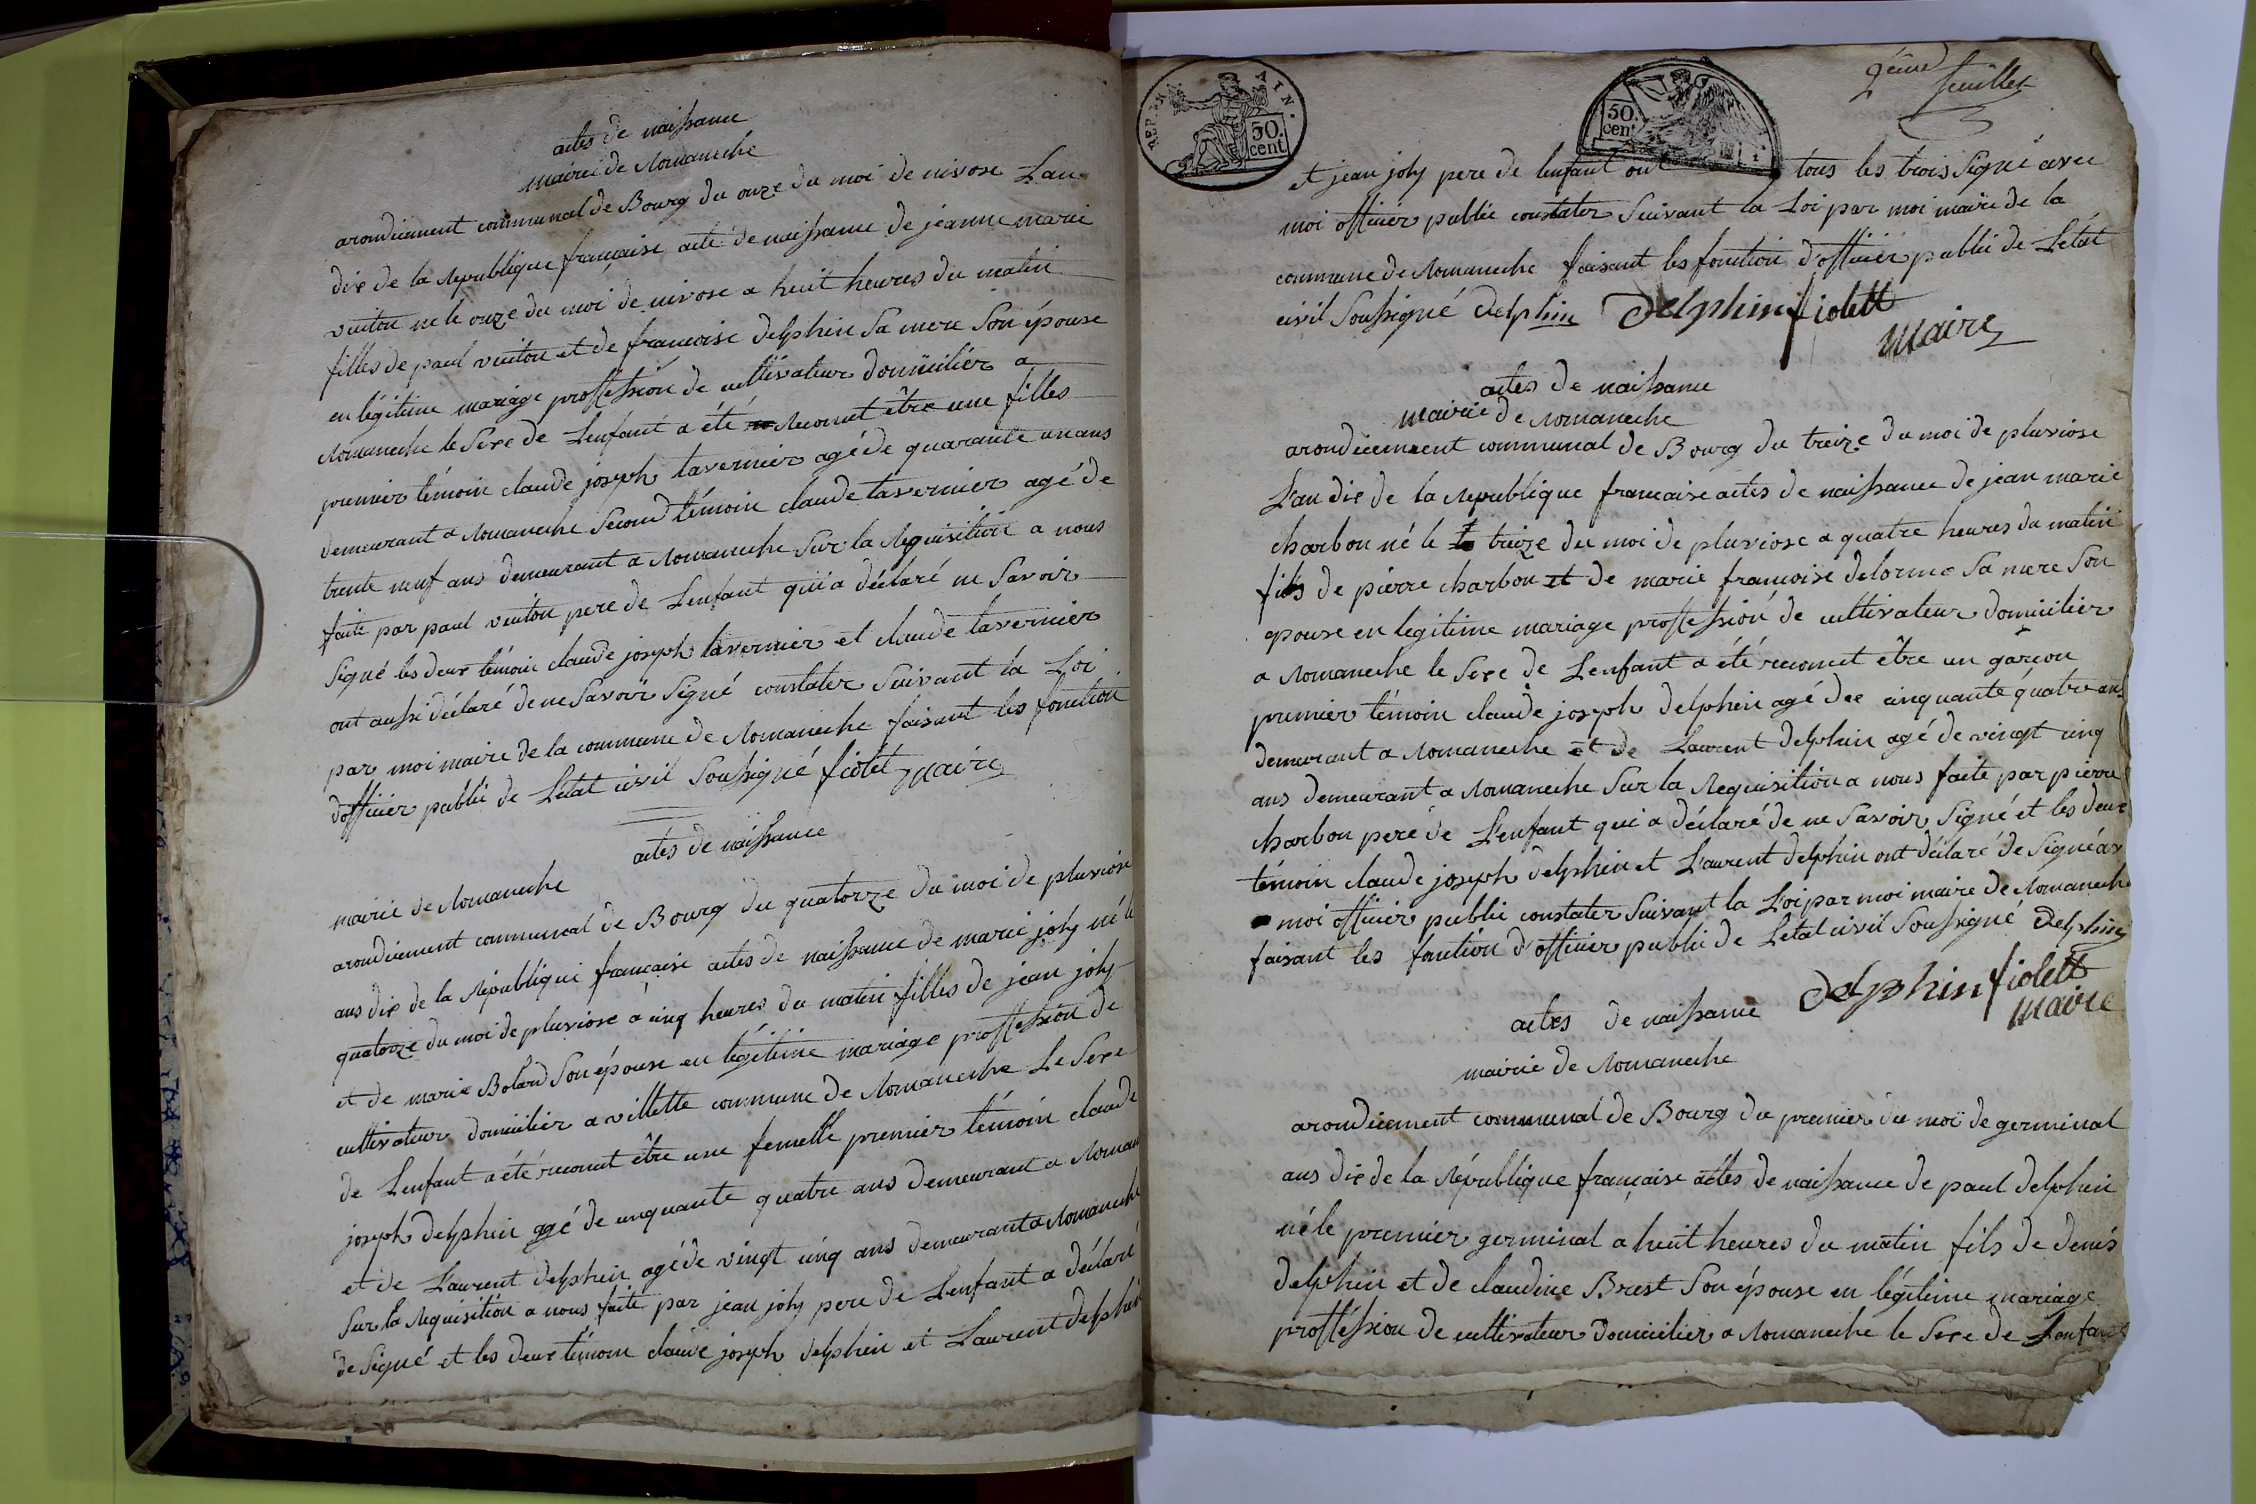 actes de naissance
mairie de Romaneche
arondicement communal de Bourg du onze du moi de nivose Lan
dix de la Republique française acte de naissance de jeanne marie
vuiton ne le onze du moi de nivose a huit heures du matin
filles de paul vuiton et de francoise delphin Sa mere Son épouse
en légitime mariage proffession de cultivateur domicilier a
Romaneche le Sexe de Lenfant a été reconut être une filles
premier témoin claude joseph tavernier agé de quarante un ans
demeurant a Romaneche Second témoin claude tavernier agé de
trente neuf ans demeurant a Romaneche Sur la Requisition a nous
faite par paul vuiton pere de Lenfant qui a déclaré ne Savoir
Signé les deux témoin claude joseph tavernier et claude tavernier
ont aussi déclaré de ne Savoir Signé constater Suivant la Loi
par moi maire de la commune de Romaneche faisant les fonction
dofficier public de Letat civil Soussigné fiolet maire
actes de naissance
mairie de Romaneche
arondicement communal de Bourg du quatorze du moi de pluviose
ans dix de la République française actes de naissance de marie joly né le
quatorze du moi de pluviose a cinq heures du matin filles de jean joly
et de marie Bolard Son épouse en légitime mariage proffession de
cultivateur domicilier a villette commune de Romaneche Le Sexe
de Lenfant a été reconut être une femelle premier témoin claude
joseph delphin agé de cinquante quatre ans demeurant a Roman
et de Laurent delphin agé de vingt cinq ans demeurant a Romaneche
Sur la Requisition a nous faite par jean joly pere de Lenfant a déclaré
de Signé et les deux témoin claude joseph delphin et Laurent delphin
REP. FRA
AIN.
50.
cent
50.
cent
2eme
feuillet
et jean joly pere de lenfant ont tous les trois Signé avec
moi officier public constater Suivant la Loi par moi maire de la
commune de Romaneche faisant les fonction d'officier public de Létat
civil Soussigné delphin Delphin fiolett
maire
actes de naissance
mairie de Romaneche
arondicement communal de Bourg du treize du moi de pluviose
L'an dix de la Republique francaise actes de naissance de jean marie
charbon né le treize du moi de pluviose a quatre heures du matin
fils de pierre charbon et de marie francoise delorme Sa mere Son
epouse en legitime mariage proffession de cultivateur domicilier
a Romaneche le Sexe de Lenfant a été reconut être un garcon
premier témoin claude joseph delphin agé dee cinquante quatre ans
demeurant a Romaneche et de Laurent delphin agé de vingt cinq
ans demeurant a Romaneche Sur la Requisition a nous faite par pierre
charbon pere de L'enfant qui a déclaré de ne Savoir Signé et les deux
témoin claude joseph delphin et Laurent delphin ont déclaré de Signé av
moi officier public constater Suivant la Loi par moi maire de Romaneche
faisant les fontion d'officier public de Letat civil Soussigné delphin
Delphin fiolett
maire
actes de naissance
mairie de Romaneche
arondicement communal de Bourg du premier du moi de germinal
ans dix de la République française actes de naissance de paul delphin
né le premier germinal a huit heures du matin fils de denis
delphin et de claudine Brest Son épouse en légitime mariage
proffession de cultivateur domicilier a Romaneche le Sexe de Lenfant